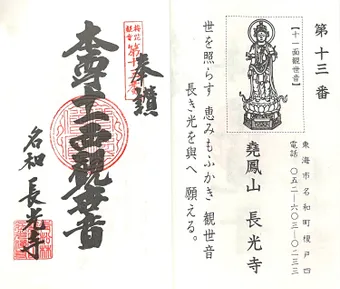 第十三番
【十一面観世音】
東海市名和町榎戸四
電話 〇五二―六〇三―〇二三三
堯鳳山 長光寺
世を照らす 恵みもふかき 観世音
長き光を與へ 願える。
奉
本尊十一面観世音
名和 長光寺